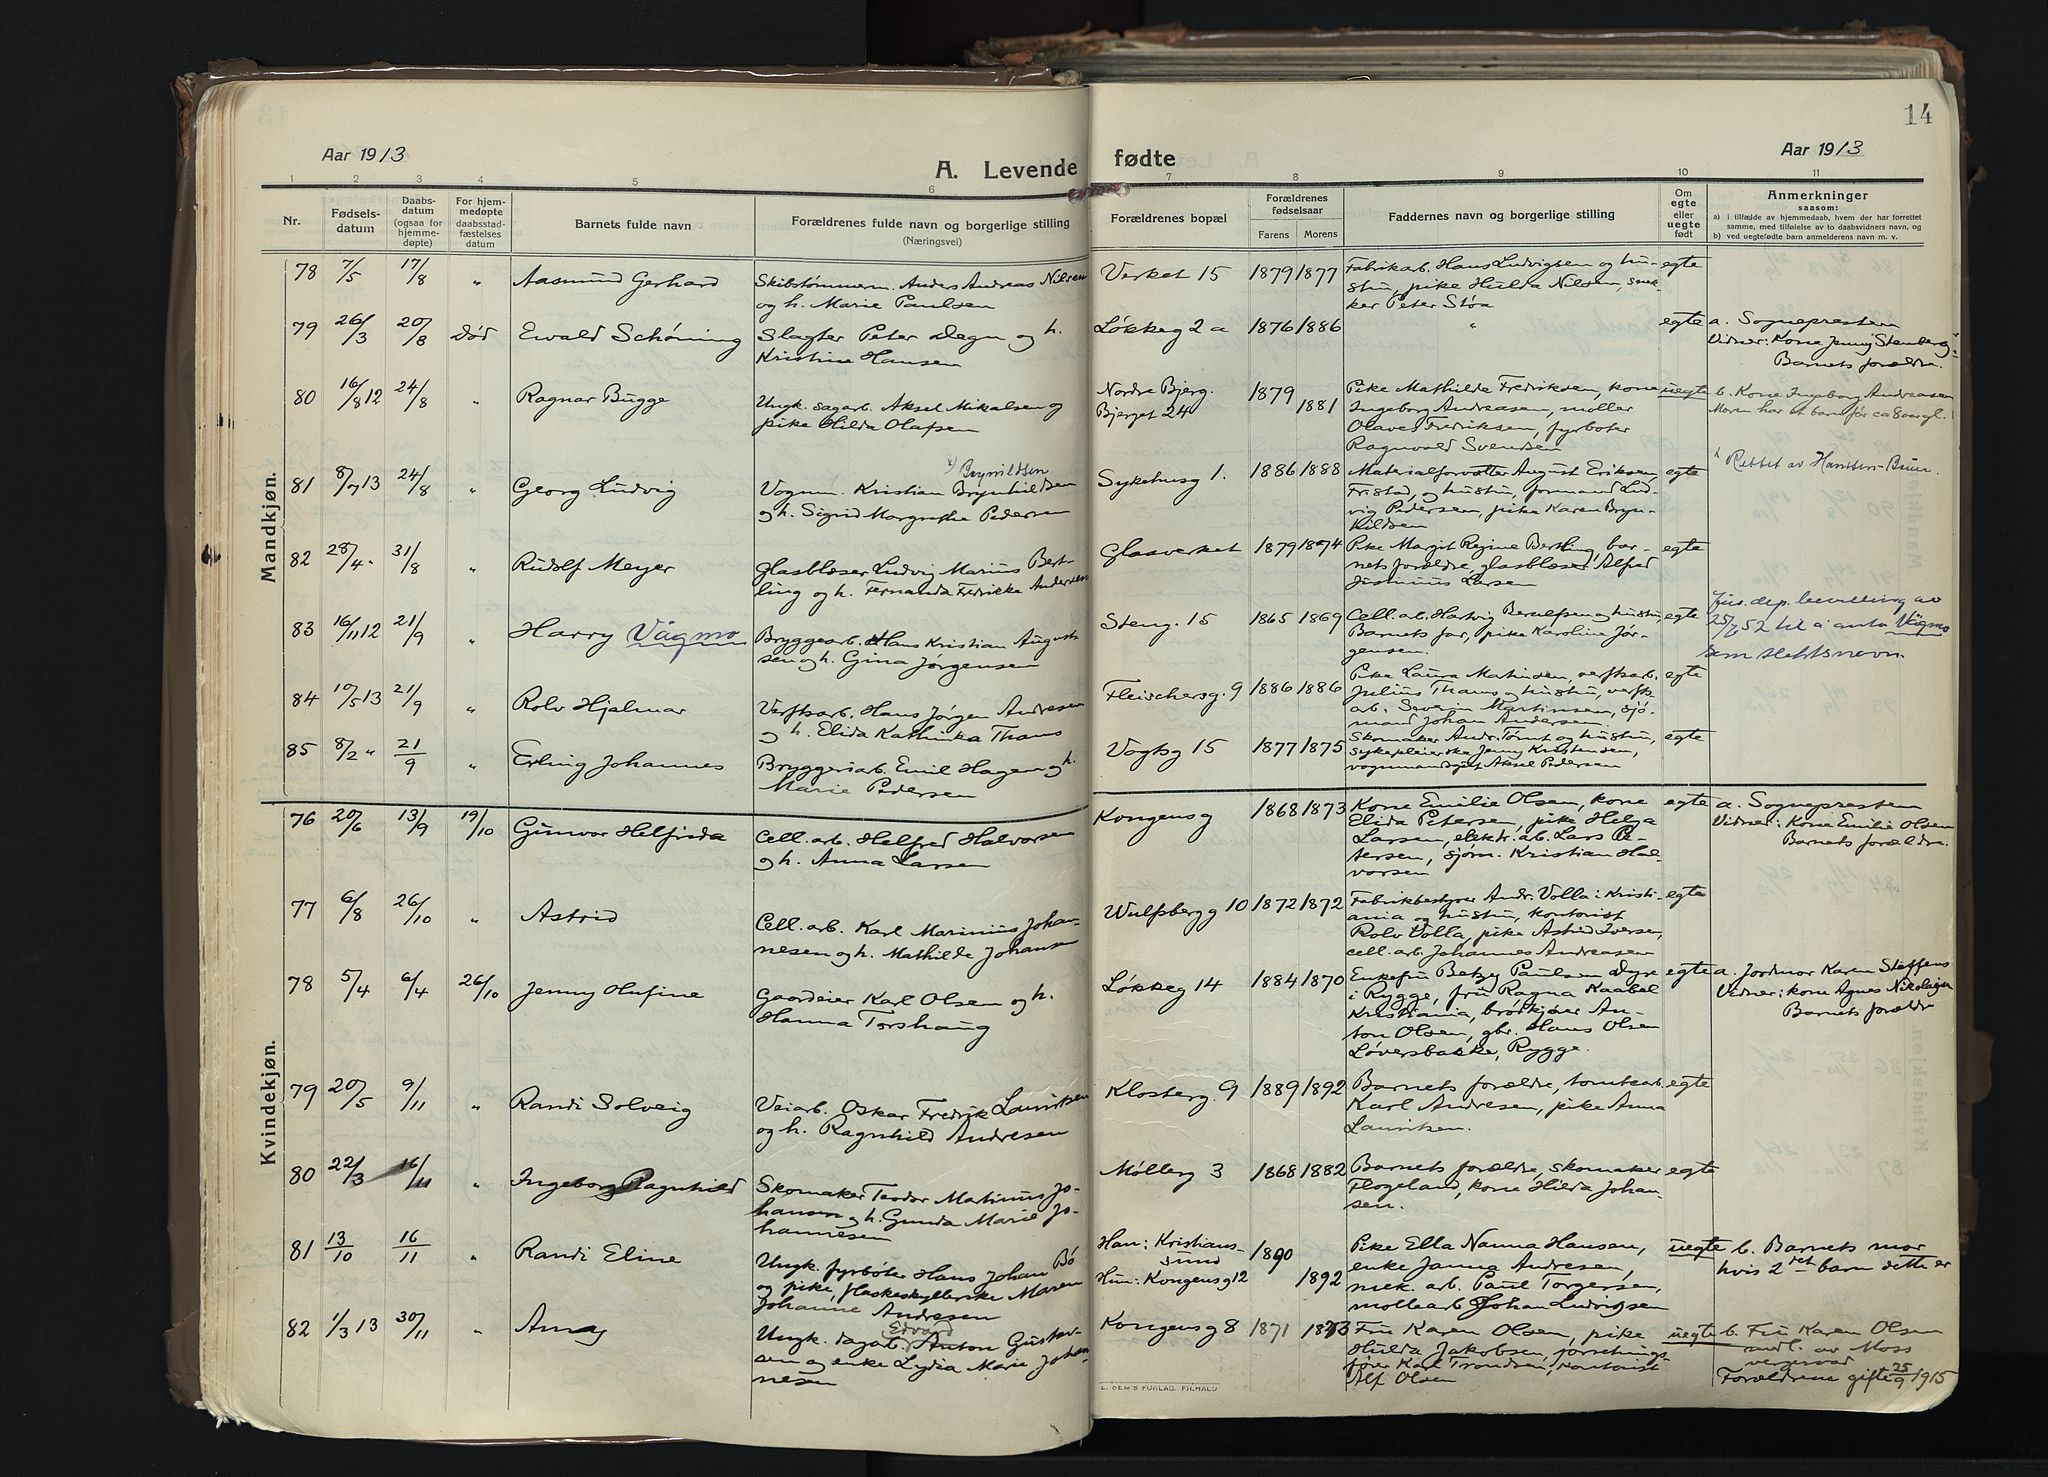 14
Aar 1913
A. Levende fødte
Aar 1913
1 2 3 4 5 6 7 8 9 10 11
Nr.
Fødsels-
datum
Daabs-
datum
(ogsaa for
hjemme-
døpte)
For hjem-
medøpte
daabsstad-
fæstelses
datum
Barnets fulde navn
Forældrenes fulde navn og borgerlige stilling
(Næringsvei)
Forældrenes bopæl
Forældrenes
fødselsaar
Farens Morens
Faddernes navn og borgerlige stilling
Om
egte
eller
uegte
født
Anmerkninger
saasom:
a) i tilfælde av hjemmedaab, hvem der har forrettet
samme, med tilføielse av to daabsvidners navn, og
b) ved uegtefødte barn anmelderens navn m. v.
Mandkjøn.
78 7/5 17/8 " Aasmund Gerhard
Skibstømmerm. Anders Andreas Nilsen
og h. Marie Paulsen
Verket 15 1879 1877
Fabrikarb. Hans Ludvigsen og hu-
stru, pike Hulda Nilsen, snek-
ker Peter Støa
egte
79 26/3 20/8 Død Ewald Schøning
Slagter Peter Degn og h.
Kristine Hansen
Løkkeg 2 a 1876 1886 " egte
a. Sognepresten
Vidner: Kone Jenny Stenberg
Barnets forældre.
80 16/8 12 24/8 " Ragnar Bugge
Ungk. sagarb. Aksel Mikalsen og
pike Hilda Olafsen
Nordre Bjerg.
Bjerget 24
1879
1881
Pike Mathilde Fredriksen, kone
Ingeborg Andreasen, møller
Olaves Fredriksen, fyrbøter
Ragnvald Svendsen
uegte
b. Kone Ingeborg Andreasen
Moren har et barn før ca 8 aar gl.
81 8/7 13 24/8 " Georg Ludvig
x) Brynildsen
Vognm. Kristian Brynhildsen
og h. Sigrid Margrethe Pedersen
Sykehusg 1. 1886 1888
Materialforvalter August Eriksen,
Fristad, og hustru, formand Lud-
vig Pedersen, pike Karen Bryn-
hildsen
egte
x Rettet av
82 28/4 " 31/8 " Rudolf Meyer
Glasblæser Ludvig Marius Bert-
ling og h. Fernanda Fredrikke Andersen
Glasverket 1879 1874
Pike Margit Regine Bertling, bar-
nets forældre, glasblæser Alfred
Justinius Larsen
egte
83 16/11 12 21/9 " Harry Vågmo
Bryggearb. Hans Kristian August-
sen og h. Gina Jørgensen
Steng. 15 1865 1869
Cell. arb. Hartvig Berulfsen og hustru,
Barnets far, pike Karoline Jør-
gensen.
egte
Jus. dep. bevilling av
25/7 52 til å anta Vågmo
som slektsnavn.
84 10/5 13 21/9 " Rolv Hjalmar
Verftsarb. Hans Jørgen Andresen
og h. Elida Kathinka Thams
Fleischersg. 9 1886 1886
Pike Laura Mathisen, verftsarb.
Julius Thams og hustru, verfts
arb. Severin Martinsen, sjø-
mand Johan Andersen
egte
85 8/2 " 21/9 " Erling Johannes
Bryggeriarb. Emil Hagen og h.
Marie Pedersen
Vogtsg 15 1877 1875
Skomaker Andr. Tømt og hustru,
sykepleierske Jenny Kristensen,
vognmandsgut Aksel Pedersen
egte
Kvindekjøn.
76 20/6 13/9 19/10 Gunvor Helfrida
Cell. arb. Helfred Halvorsen
og h. Anna Larsen
Kongensg 1868 1873
Kone Emilie Olsen, kone
Elida Petersen, pike Helga
Larsen, elektr. arb. Lars Pe-
tersen, sjøm. Kristian Hal-
vorsen
egte
a. Sognepresten
Vidner: Kone Emilie Olsen
Barnets forældre.
77 6/8 26/10 " Astrid
Cell. arb. Karl Marinius Johan-
nesen og h. Mathilde Johansen
Wulfsbergg 10 1872 1872
Fabrikbestyrer Andr. Volla i Kristi-
ania og hustru, kontorist
Rolv Volla, pike Astrid Iversen,
cell. arb. Johannes Andreasen
egte
78 5/4 6/4 26/10 Jenny Olufine
Gaardeier Karl Olsen og h.
Hanna Torshaug
Løkkeg 14 1884 1870
Enkefru Betzy Paulsen Dyre
i Rygge, fru Ragna Kaabel
Kristiania, brødkjører An-
ton Olsen, gbr. Hans Olsen
Løversbakke, Rygge.
egte
a. Jordmor Karen Steffens
Vidner: kone Agnes Nikolaisen
Barnets forældre
79 20/5 9/11 " Randi Solveig
Veiarb. Oskar Fredrik Lauritsen
og h. Ragnhild Andresen
Klosterg. 9 1889 1892
Barnets forældre, tomtearb.
Karl Andresen, pike Anna
Lauritsen.
egte
80 22/3 16/11 " Ingeborg Ragnhild
Skomaker Teodor Matinius Jo-
hansen og h. Gunda Marie Jo-
hannesen
Møllerg 3 1868 1882
Barnets forældre, skomaker
Flogeland, kone Hilda Johan-
sen.
egte
81 13/10 16/11 " Randi Eline
Ungk. fyrbøter Hans Johan Bö
og pike, flaskeskyllerske Maren
Johanne Andresen
Han: Kristians-
sund
Hun: Kongensg 12
1890
1892
Pike Ella Nanna Hansen,
enke Janna Andresen,
mek. arb. Paul Torgersen,
møllearb Johan Ludvigsen
uegte
b. Barnets mor
hvis 2det barn dette er
82 1/3 13 30/11 " Anny
Edvard
Ungk. dagarb. Anton Gustav-
sen og enke Lydia Marie Johan-
nesen
Kongensg 8 1871 1873
Fru Karen Olsen, pike
Hulda Jakobsen, forretnings-
fører Karl Trondsen, kontorist
Alf Olsen
uegte
b. Fru Karen Olsen
medl. av Moss
vergeraad
Forældrene gifte 25/9 1915
E. SEM'S FORLAG. FR.HALD